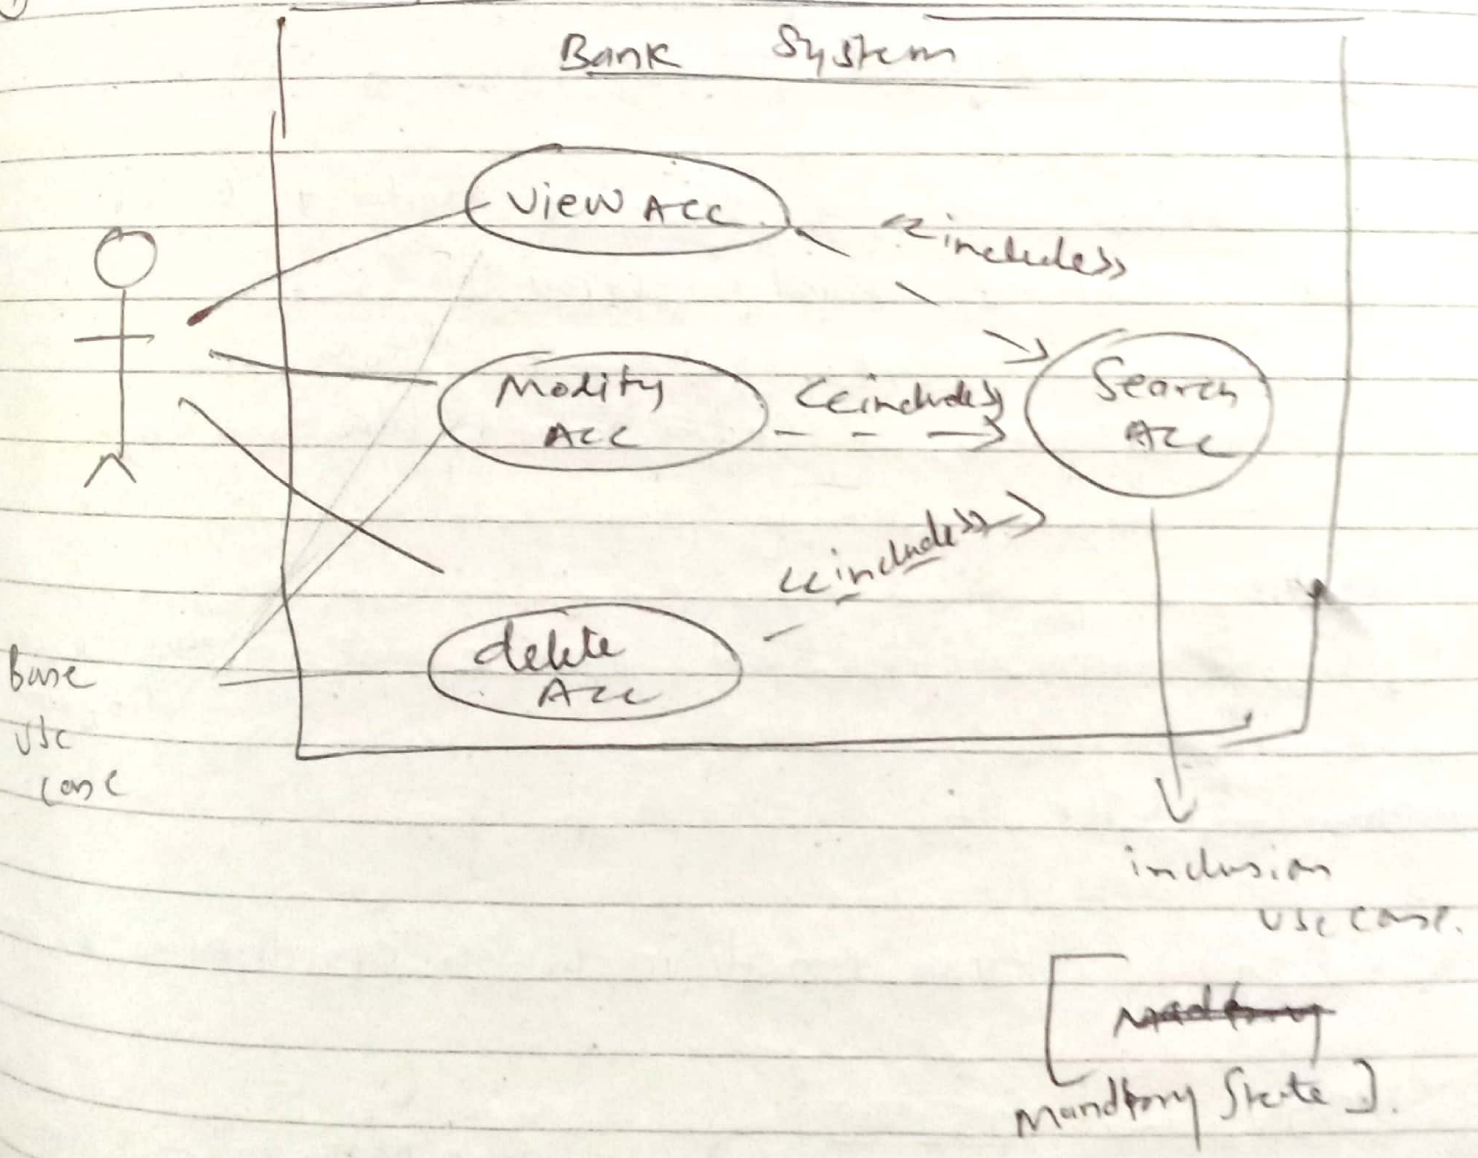 Bank System
View Acc
<<includes>>
Modify
Acc
<<includes>>
Search
Acc
<<includes>>
delete
Acc
Base
use
case
inclusion
use case.
[
Mandtory State].